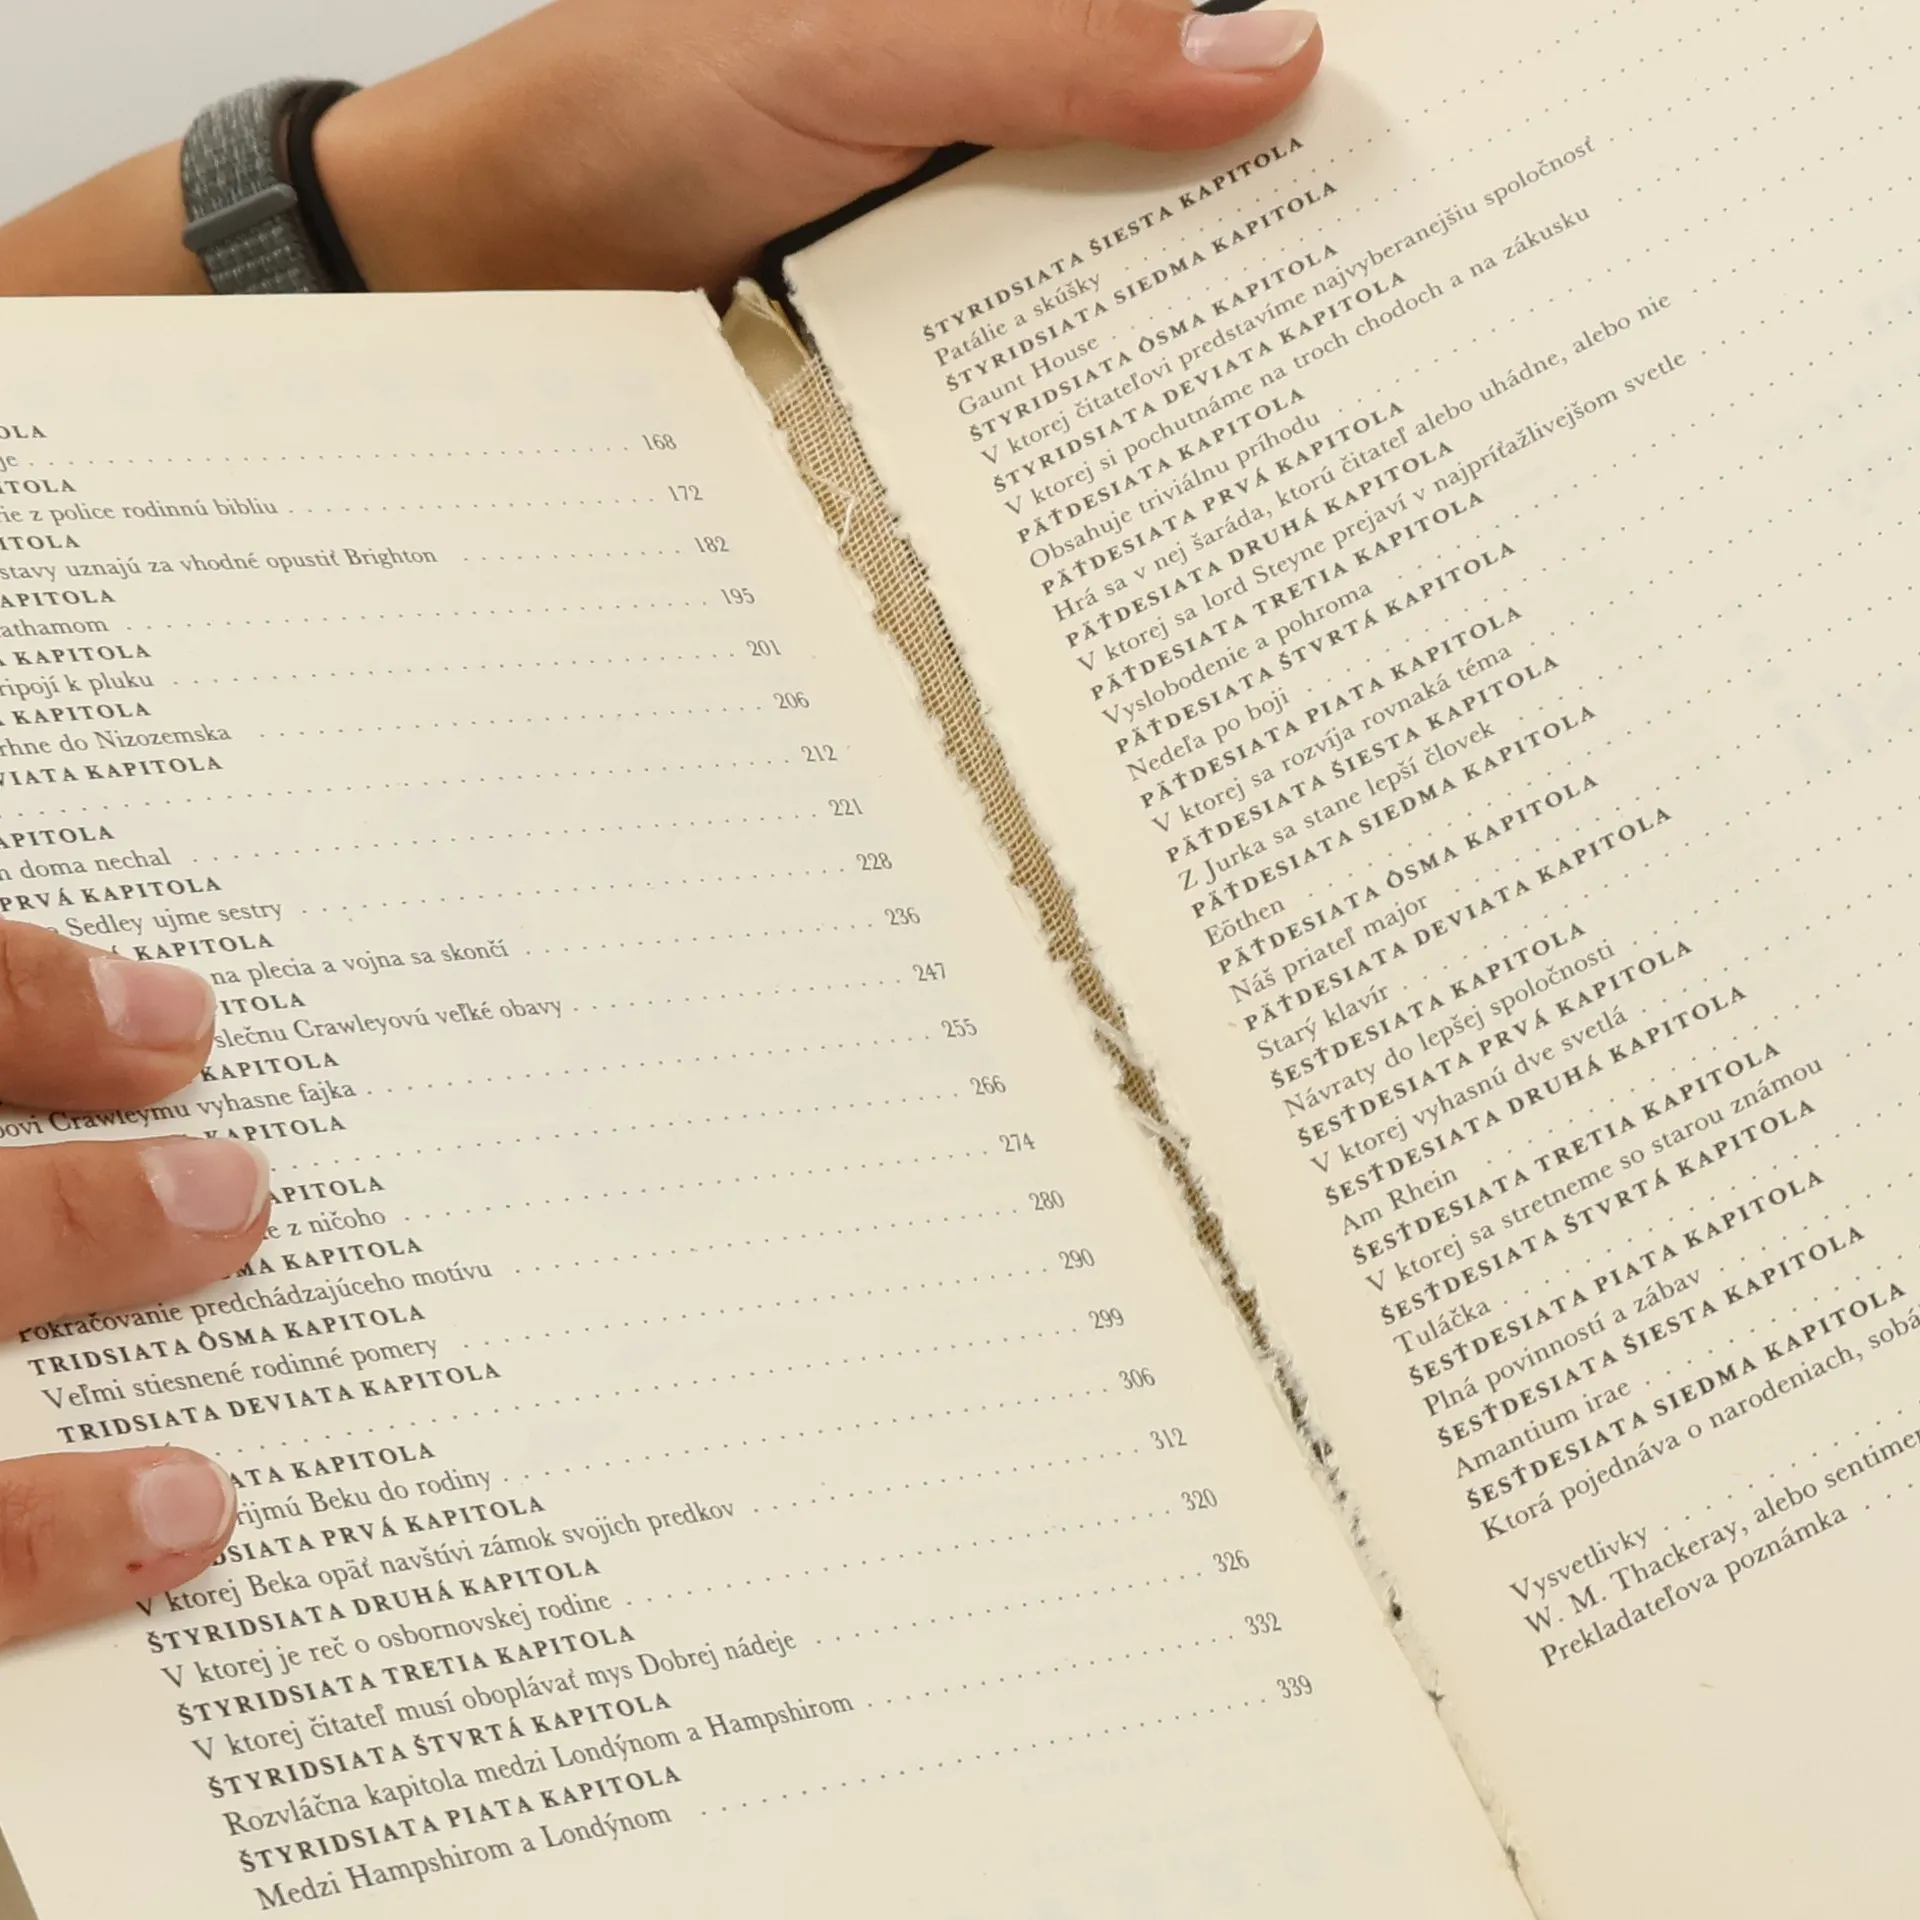 KAPITOLA
168
z police rodinnú bibliu . . . 172
uznajú za vhodné opustiť Brighton . . . 182
KAPITOLA
. . . 195
KAPITOLA
k pluku . . . 201
KAPITOLA
do Nizozemska . . . 206
KAPITOLA
. . . 212
KAPITOLA
doma nechal . . . 221
PRVÁ KAPITOLA
Sedley ujme sestry . . . 228
KAPITOLA
na plecia a vojna sa skončí . . . 236
slečnu Crawleyovú veľké obavy . . . 247
KAPITOLA
Crawleymu vyhasne fajka . . . 255
KAPITOLA
. . . 266
KAPITOLA
z ničoho . . . 274
KAPITOLA
Pokračovanie predchádzajúceho motívu . . . 280
TRIDSIATA ÔSMA KAPITOLA
Veľmi stiesnené rodinné pomery . . . 290
TRIDSIATA DEVIATA KAPITOLA
. . . 299
KAPITOLA
Beku do rodiny . . . 306
PRVÁ KAPITOLA
V ktorej Beka opäť navštívi zámok svojich predkov . . . 312
ŠTYRIDSIATA DRUHÁ KAPITOLA
V ktorej je reč o osbornovskej rodine . . . 320
ŠTYRIDSIATA TRETIA KAPITOLA
V ktorej čitateľ musí oboplávať mys Dobrej nádeje . . . 326
ŠTYRIDSIATA ŠTVRTÁ KAPITOLA
Rozvláčna kapitola medzi Londýnom a Hampshirom . . . 332
ŠTYRIDSIATA PIATA KAPITOLA
Medzi Hampshirom a Londýnom . . . 339
ŠTYRIDSIATA ŠIESTA KAPITOLA
Patálie a skúšky
ŠTYRIDSIATA SIEDMA KAPITOLA
Gaunt House
ŠTYRIDSIATA ÔSMA KAPITOLA
V ktorej čitateľovi predstavíme najvyberanejšiu spoločnosť
ŠTYRIDSIATA DEVIATA KAPITOLA
V ktorej si pochutnáme na troch chodoch a na zákusku
PÄŤDESIATA KAPITOLA
Obsahuje triviálnu príhodu
PÄŤDESIATA PRVÁ KAPITOLA
Hrá sa v nej šaráda, ktorú čitateľ alebo uhádne, alebo nie
PÄŤDESIATA DRUHÁ KAPITOLA
V ktorej sa lord Steyne prejaví v najpríťažlivejšom svetle
PÄŤDESIATA TRETIA KAPITOLA
Vyslobodenie a pohroma
PÄŤDESIATA ŠTVRTÁ KAPITOLA
Nedeľa po boji
PÄŤDESIATA PIATA KAPITOLA
V ktorej sa rozvíja rovnaká téma
PÄŤDESIATA ŠIESTA KAPITOLA
Z Jurka sa stane lepší človek
PÄŤDESIATA SIEDMA KAPITOLA
Eöthen
PÄŤDESIATA ÔSMA KAPITOLA
Náš priateľ major
PÄŤDESIATA DEVIATA KAPITOLA
Starý klavír
ŠESŤDESIATA KAPITOLA
Návraty do lepšej spoločnosti
ŠESŤDESIATA PRVÁ KAPITOLA
V ktorej vyhasnú dve svetlá
ŠESŤDESIATA DRUHÁ KAPITOLA
Am Rhein
ŠESŤDESIATA TRETIA KAPITOLA
V ktorej sa stretneme so starou známou
ŠESŤDESIATA ŠTVRTÁ KAPITOLA
Tuláčka
ŠESŤDESIATA PIATA KAPITOLA
Plná povinností a zábav
ŠESŤDESIATA ŠIESTA KAPITOLA
Amantium irae
ŠESŤDESIATA SIEDMA KAPITOLA
Ktorá pojednáva o narodeniach,
Vysvetlivky
W. M. Thackeray, alebo
Prekladateľova poznámka